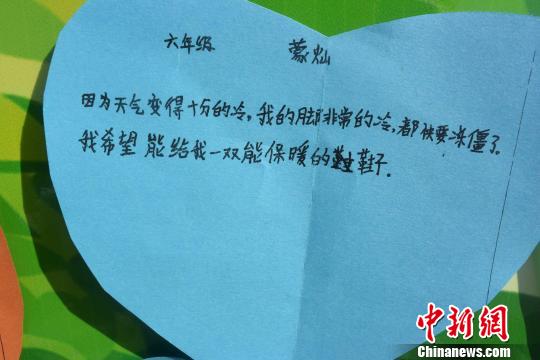 六年级 蒙灿
因为天气变得十分的冷,我的脚非常的冷,都快要冻僵了。
我希望能给我一双能保暖的鞋子。
中新网
Chinanews.com